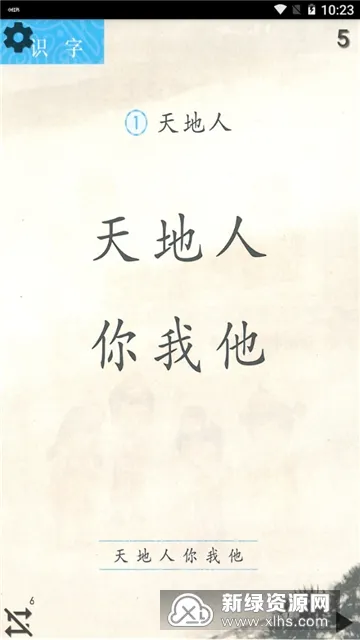 10:23
识字
5
① 天地人
天地人
你我他
天地人你我他
6
新绿资源网
www.xlhs.com